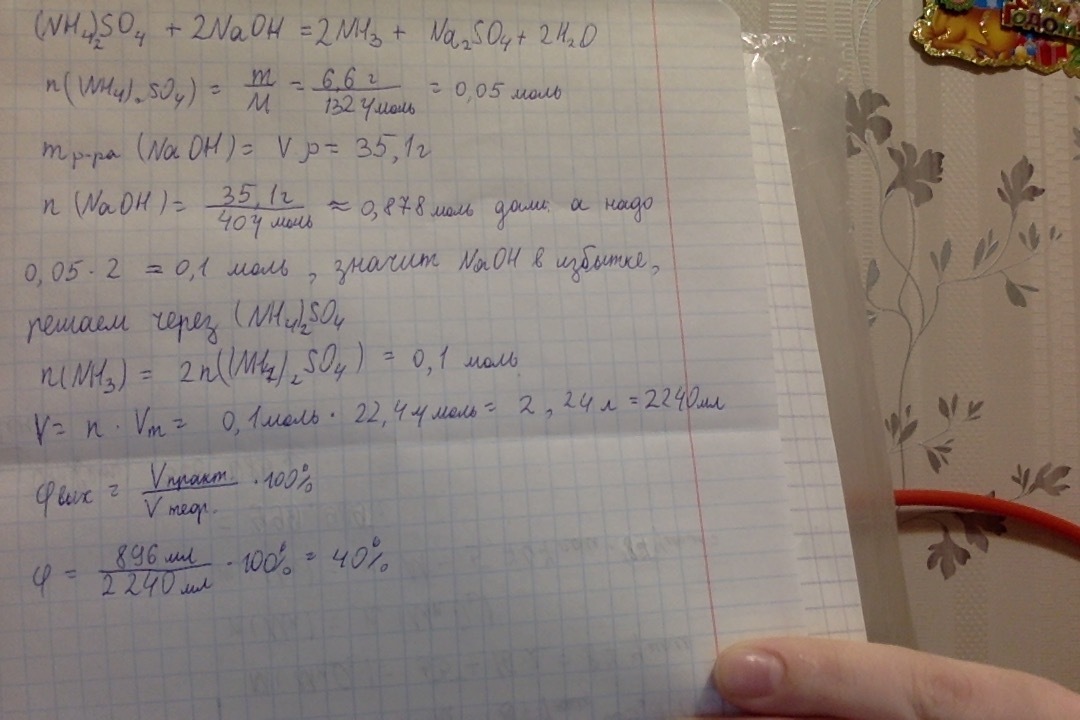 (NH₄)₂SO₄ + 2NaOH = 2NH₃ + Na₂SO₄ + 2H₂O
n((NH₄)₂SO₄) = m/M = 6,6 г/132 г/моль = 0,05 моль
m р-ра (NaOH) = V ρ = 35,1 г
n (NaOH) = 35,1 г/40 г/моль ≈ 0,878 моль дали. а надо
0,05 · 2 = 0,1 моль, значит NaOH в избытке,
решаем через (NH₄)₂SO₄
n(NH₃) = 2n((NH₄)₂SO₄) = 0,1 моль
V = n · Vm = 0,1 моль · 22,4 л/моль = 2,24 л = 2240 мл
φ вых = V практ./V теор. · 100%
φ = 896 мл/2240 мл · 100% = 40%